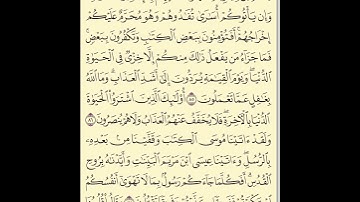 وَإِن يَأْتُوكُمْ أُسَٰرَىٰ تُفَٰدُوهُمْ وَهُوَ مُحَرَّمٌ عَلَيْكُمْ
إِخْرَاجُهُمْ أَفَتُؤْمِنُونَ بِبَعْضِ ٱلْكِتَٰبِ وَتَكْفُرُونَ بِبَعْضٍ
فَمَا جَزَآءُ مَن يَفْعَلُ ذَٰلِكَ مِنكُمْ إِلَّا خِزْىٌ فِى ٱلْحَيَوٰةِ
ٱلدُّنْيَا وَيَوْمَ ٱلْقِيَٰمَةِ يُرَدُّونَ إِلَىٰٓ أَشَدِّ ٱلْعَذَابِ وَمَا ٱللَّهُ
بِغَٰفِلٍ عَمَّا تَعْمَلُونَ ٨٥ أُو۟لَٰٓئِكَ ٱلَّذِينَ ٱشْتَرَوُا۟ ٱلْحَيَوٰةَ
ٱلدُّنْيَا بِٱلْءَاخِرَةِ فَلَا يُخَفَّفُ عَنْهُمُ ٱلْعَذَابُ وَلَا هُمْ يُنصَرُونَ ٨٦
وَلَقَدْ ءَاتَيْنَا مُوسَى ٱلْكِتَٰبَ وَقَفَّيْنَا مِنۢ بَعْدِهِۦ
بِٱلرُّسُلِ وَءَاتَيْنَا عِيسَى ٱبْنَ مَرْيَمَ ٱلْبَيِّنَٰتِ وَأَيَّدْنَٰهُ بِرُوحِ
ٱلْقُدُسِ أَفَكُلَّمَا جَآءَكُمْ رَسُولٌۢ بِمَا لَا تَهْوَىٰٓ أَنفُسُكُمُ